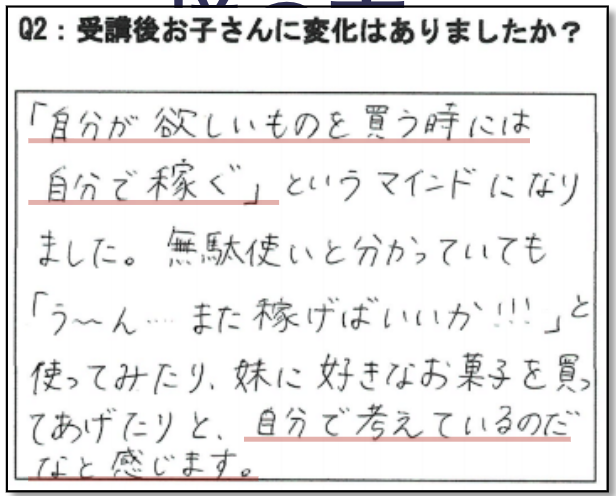 Q2：受講後お子さんに変化はありましたか？
「自分が欲しいものを買う時には
自分で稼ぐ」というマインドになり
ました。無駄使いと分かっていても
「う〜ん…また稼げばいいか!!!」と
使ってみたり、妹に好きなお菓子を買っ
てあげたりと、自分で考えているのだ
なと感じます。